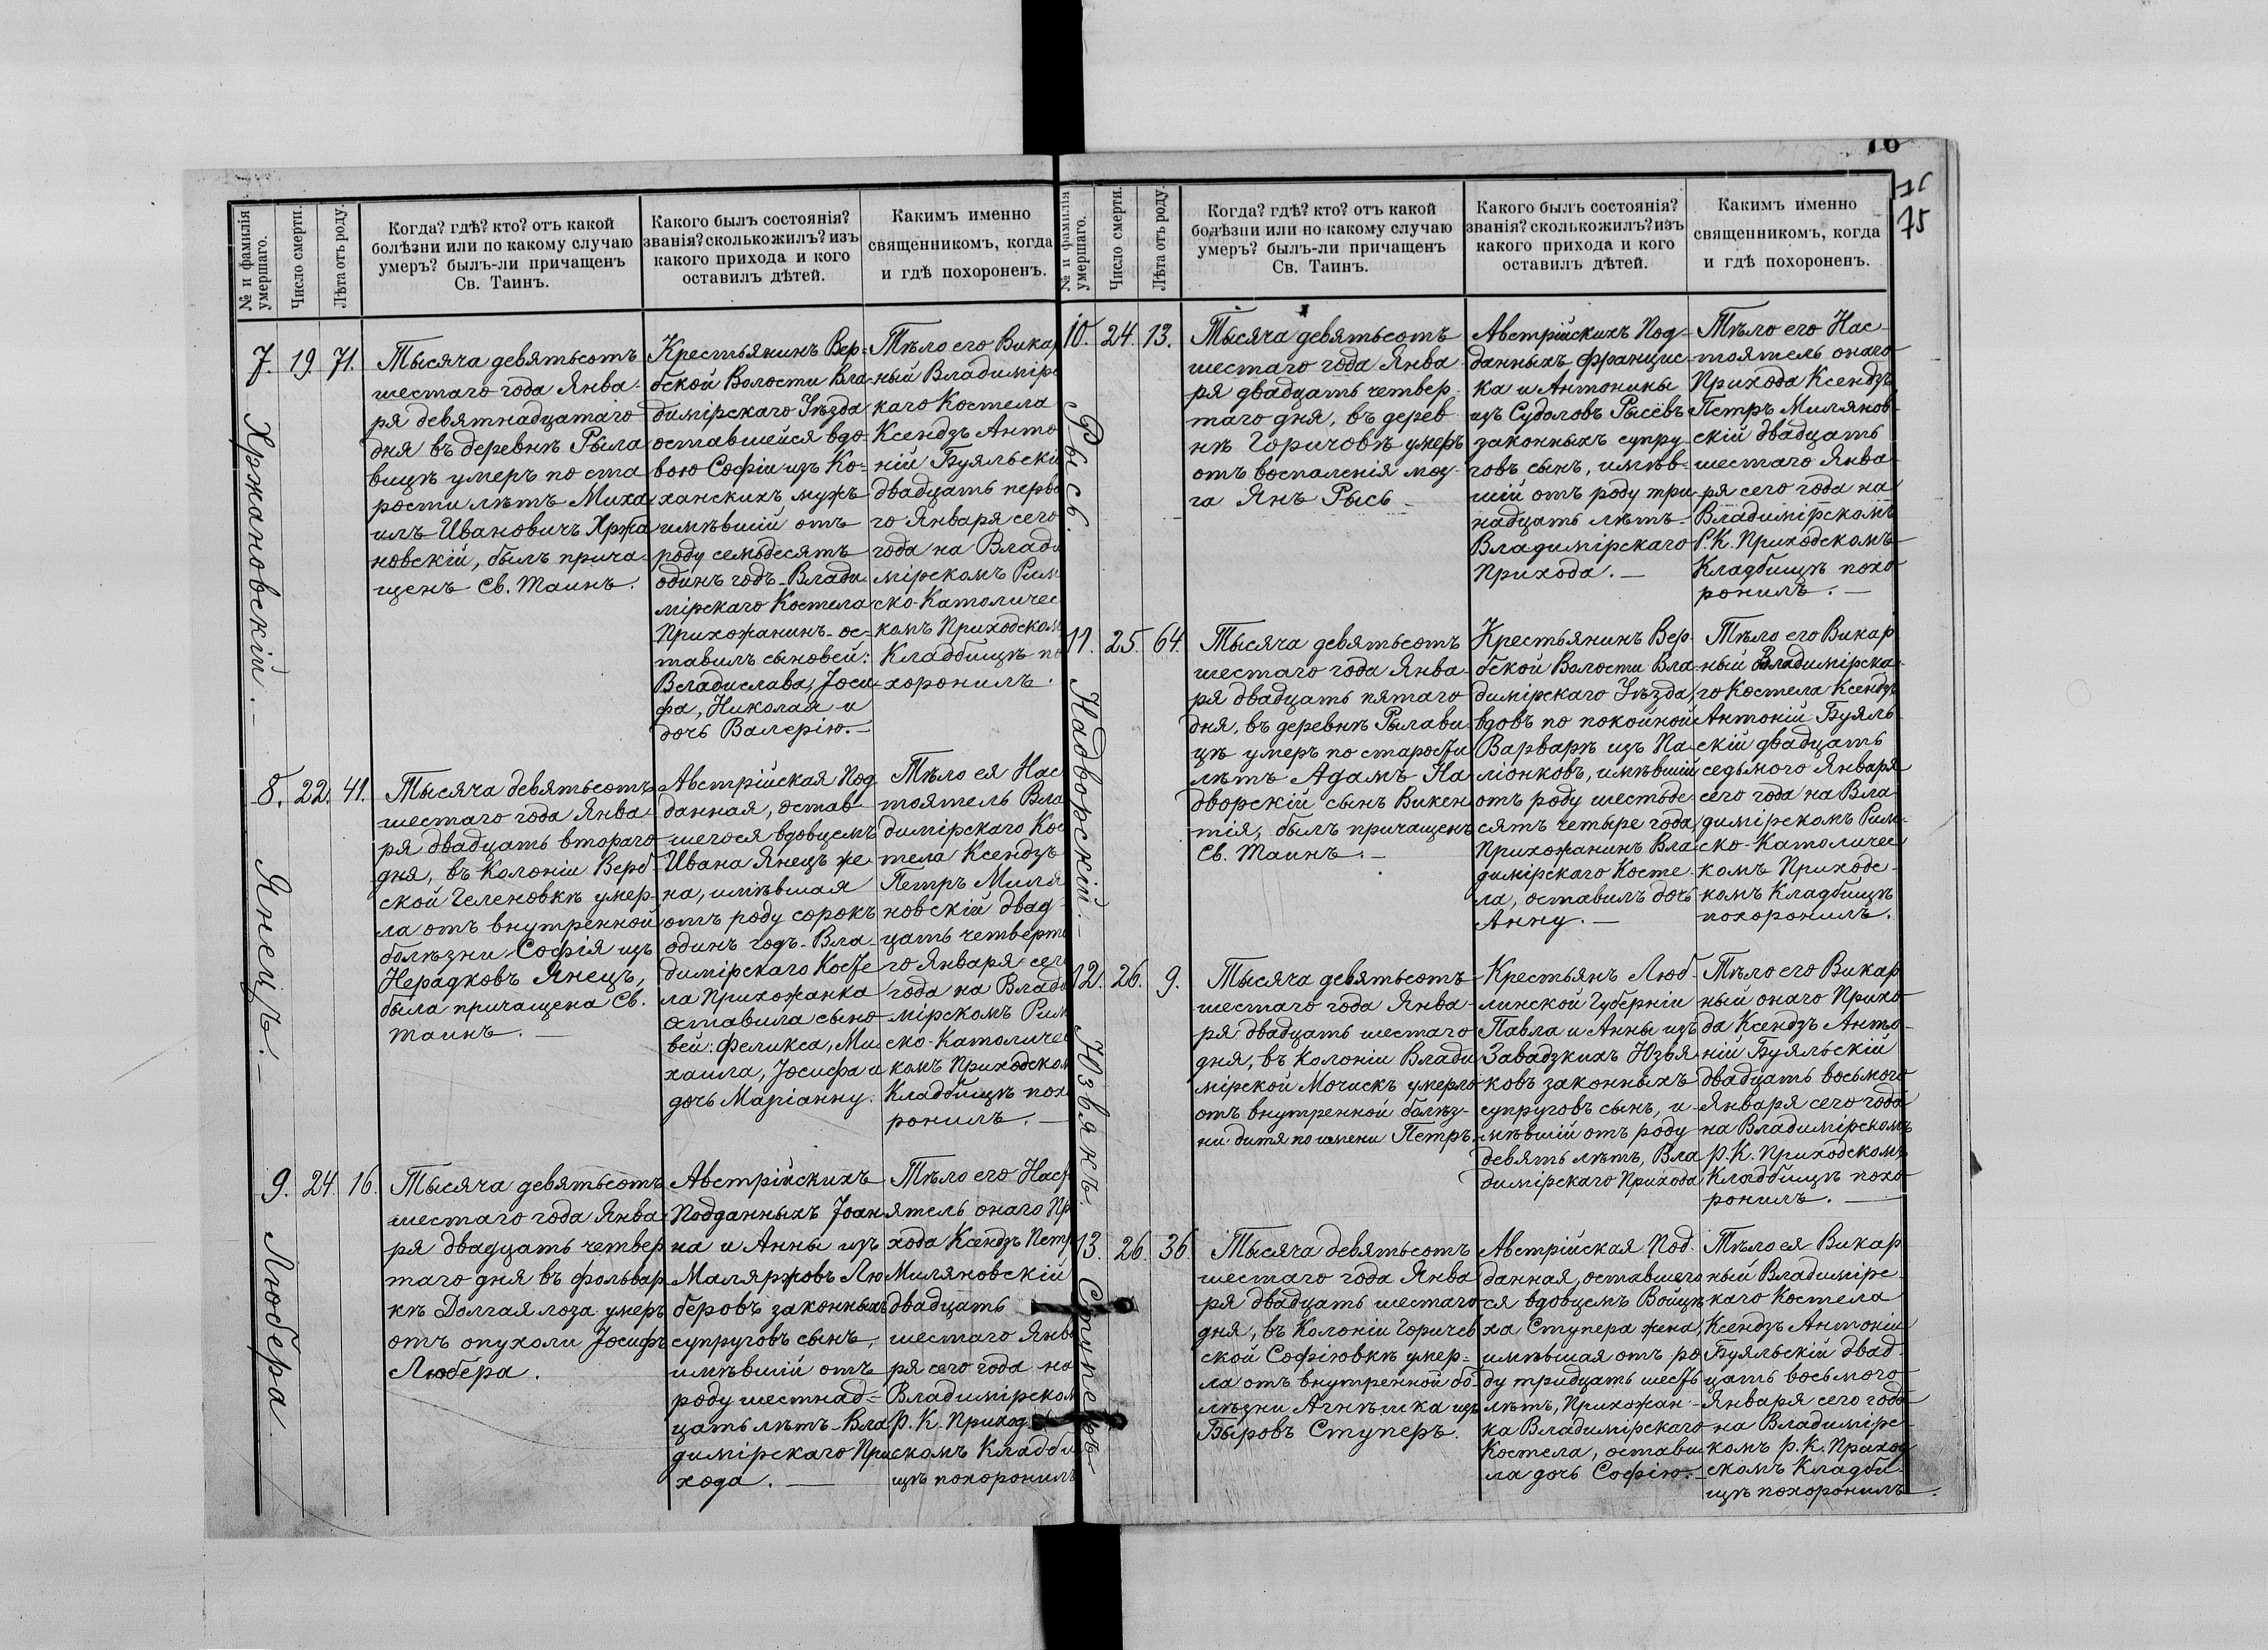 76
75
75
№ и фамилія умершаго.
Число смерти.
Лѣта отъ роду.
Когда? гдѣ? кто? отъ какой
болѣзни или по какому случаю
умеръ? былъ-ли причащенъ
Св. Таинъ.
Какого былъ состоянія?
званія? сколько жилъ? изъ
какого прихода и кого
оставилъ дѣтей.
Какимъ именно
священникомъ, когда
и гдѣ похороненъ.
7.
Хржановскій.
19.
71.
Тысяча девятьсотъ
шестаго года Янва-
ря девятнадцатаго
дня въ деревнѣ Рыла
вицѣ умеръ по ста
рости лѣтъ Миха
илъ Ивановичъ Хржа
новскій, былъ прича
щенъ Св. Таинъ.
Крестьянинъ Вер-
бской Волости Вла-
димірскаго Уѣзда
оставшейся вдо-
вою Софіи изъ Ко-
ханскихъ мужъ
имѣвшій отъ
роду семьдесятъ
одинъ годъ - Влади
мірскаго Костела
Прихожанинъ - ос-
тавилъ сыновей:
Владислава, Іоси-
фа, Николая и
дочь Валерію. —
Тѣло его Викар
ный Владимірс
каго Костела
Ксендзъ Анто
ній Буяльскі
двадцать перва
го Января сего
года на Влади
мірскомъ Рим
ско-Католичес
комъ Приходском
Кладбищѣ по
хоронилъ.
8.
Янецъ. —
22.
41.
Тысяча девятьсотъ
шестаго года Янва-
ря двадцать втораго
дня, въ Колоніи Верб-
ской Геленовкѣ умер-
ла отъ внутренной
болѣзни Софія изъ
Нерадковъ Янецъ,
была причащена Св.
Таинъ. —
Австрійская Под
данная, остав-
шегося вдовцемъ
Ивана Янецъ же-
на, имѣвшая
отъ роду сорокъ
одинъ годъ - Вла-
димірскаго Косте
ла Прихожанка
оставила сыно
вей: Феликса, Ми
хаила, Іосифа и
дочь Маріанну.
Тѣло ея Нас
тоятель Вла
димірскаго Кос
тела Ксендзъ
Петръ Миля
новскій двад-
цать четверта
го Января сего
года на Влади
мірскомъ Рим
ско-Католичес
комъ Приходском
Кладбищѣ похо
ронилъ. —
9.
Любера
24.
16.
Тысяча девятьсотъ
шестаго года Янва-
ря двадцать четвер
таго дня въ фольвар
кѣ Долгая лоза умеръ
отъ опухоли Іосифъ
Любера.
Австрійскихъ
Подданныхъ Іоан
на и Анны изъ
Маляржовъ Лю
беровъ законныхъ
супруговъ сынъ,
имѣвшій отъ
роду шестнад-
цать лѣтъ - Вла
димірскаго При
хода. —
Тѣло его Наст
оятель онаго Пр
хода Ксендзъ Петр
Миляновскій
двадцать
шестаго Янв
ря сего года на
Владимірском
Р. К. Приход
скомъ Кладби
щѣ похоронилъ
№ и фамилія умершаго.
Число смерти.
Лѣта отъ роду.
Когда? гдѣ? кто? отъ какой
болѣзни или по какому случаю
умеръ? былъ-ли причащенъ
Св. Таинъ.
Какого былъ состоянія?
званія? сколько жилъ? изъ
какого прихода и кого
оставилъ дѣтей.
Какимъ именно
священникомъ, когда
и гдѣ похороненъ.
10.
Рысь.
24.
13.
Тысяча девятьсотъ
шестаго года Янва-
ря двадцать четвер-
таго дня, въ дерев
нѣ Горичовѣ умеръ
отъ воспаленія моз-
га Янъ Рысь —
Австрійскихъ Под-
данныхъ Францис-
ка и Антонины
изъ Судоловъ Рысёвъ
законныхъ супру-
говъ сынъ, имѣв-
шій отъ роду три
надцать лѣтъ -
Владимірскаго
Прихода. —
Тѣло его Нас-
тоятель онаго
Прихода Ксендзъ
Петръ Милянов-
скій двадцать
шестаго Янва-
ря сего года на
Владимірскомъ
Р. К. Приходскомъ
Кладбищѣ похо
ронилъ. —
11.
Надворскій. —
25.
64.
Тысяча девятьсотъ
шестаго года Янва-
ря двадцать пятаго
дня, въ деревнѣ Рылави
цѣ умеръ по старости
лѣтъ Адамъ На
дворскій сынъ Викен
тія, былъ причащенъ
Св. Таинъ. —
Крестьянинъ Вер-
бской Волости Вла-
димірскаго Уѣзда,
вдовъ по покойной
Варварѣ изъ Па-
ліонковъ, имѣвшій
отъ роду шестьде-
сятъ четыре года,
Прихожанинъ Вла
димірскаго Косте-
ла, оставилъ дочь
Анну. —
Тѣло его Викар
ный Владимірска-
го Костела Ксендзъ
Антоній Буяль-
скій двадцать
седьмого Января
сего года на Вла-
димірскомъ Рим-
ско-Католичес
комъ Приходс-
комъ Кладбищѣ
похоронилъ.
12.
Юзвякъ.
26.
9.
Тысяча девятьсотъ
шестаго года Янва-
ря двадцать шестаго
дня, въ колоніи Влади
мірской Мочискъ умерло
отъ внутренной болѣз-
ни дитя по имени Петръ.
Крестьянъ Люб-
линской Губерніи
Павла и Анны изъ
Завадзкихъ Юзвя-
ковъ законныхъ
супруговъ сынъ, и-
мѣвшій отъ роду
девять лѣтъ, Вла
димірскаго Прихода
Тѣло его Викар
ный онаго Прихо
да Ксендзъ Анто-
ній Буяльскій
двадцать восьмого
Января сего года
на Владимірскомъ
Р. К. Приходскомъ
Кладбищѣ похо
ронилъ. —
13.
Ступеръ
26.
36.
Тысяча девятьсотъ
шестаго года Янва
ря двадцать шестаго
дня, въ Колоніи Горичев
ской Софіювкѣ умер-
ла отъ внутренной бо-
лѣзни Агнѣшка изъ
Быровъ Ступеръ.
Австрійская Под-
данная, оставшего
ся вдовцемъ Войцѣ
ха Ступера жена,
имѣвшая отъ ро
ду тридцать шесть
лѣтъ, Прихожан-
ка Владимірскаго
Костела, остави-
ла дочь Софію. —
Тѣло ея Викар
ный Владимірс-
каго Костела
Ксендзъ Антоній
Буяльскій двад-
цать восьмого
Января сего года
на Владимірс-
комъ Р. К. Приход
скомъ Кладби-
щѣ похоронилъ